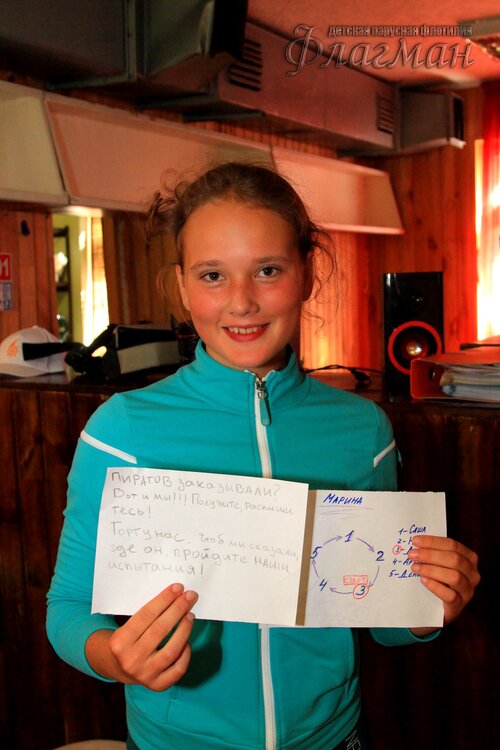 детская парусная флотилия
Флагман
ПИРАТОВ ЗАКАЗЫВАЛИ?
Вот и мы!!! Получите, распиши
тесь!
Торт у нас. Чтоб мы сказали,
где он, пройдите наши
испытания!
МАРИНА
1
2
3
4
5
СТАРТ
1-САША
2-
3-
4-
5-